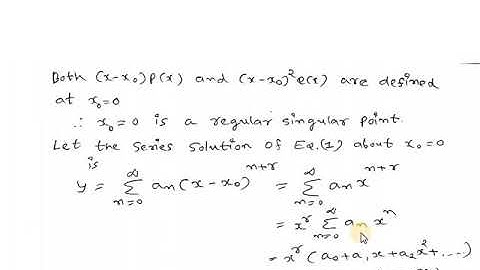 Both (x-x₀)P(x) and (x-x₀)²Q(x) are defined
at x₀=0
∴ x₀=0 is a regular singular point.
Let the series solution of Eq.(1) about x₀=0
is
y = ∞∑n=0 an(x-x₀)^n+r = ∞∑n=0 an x^n+r
= x^r ∞∑n=0 an x^n
= x^r (a₀+a₁x+a₂x²+...)